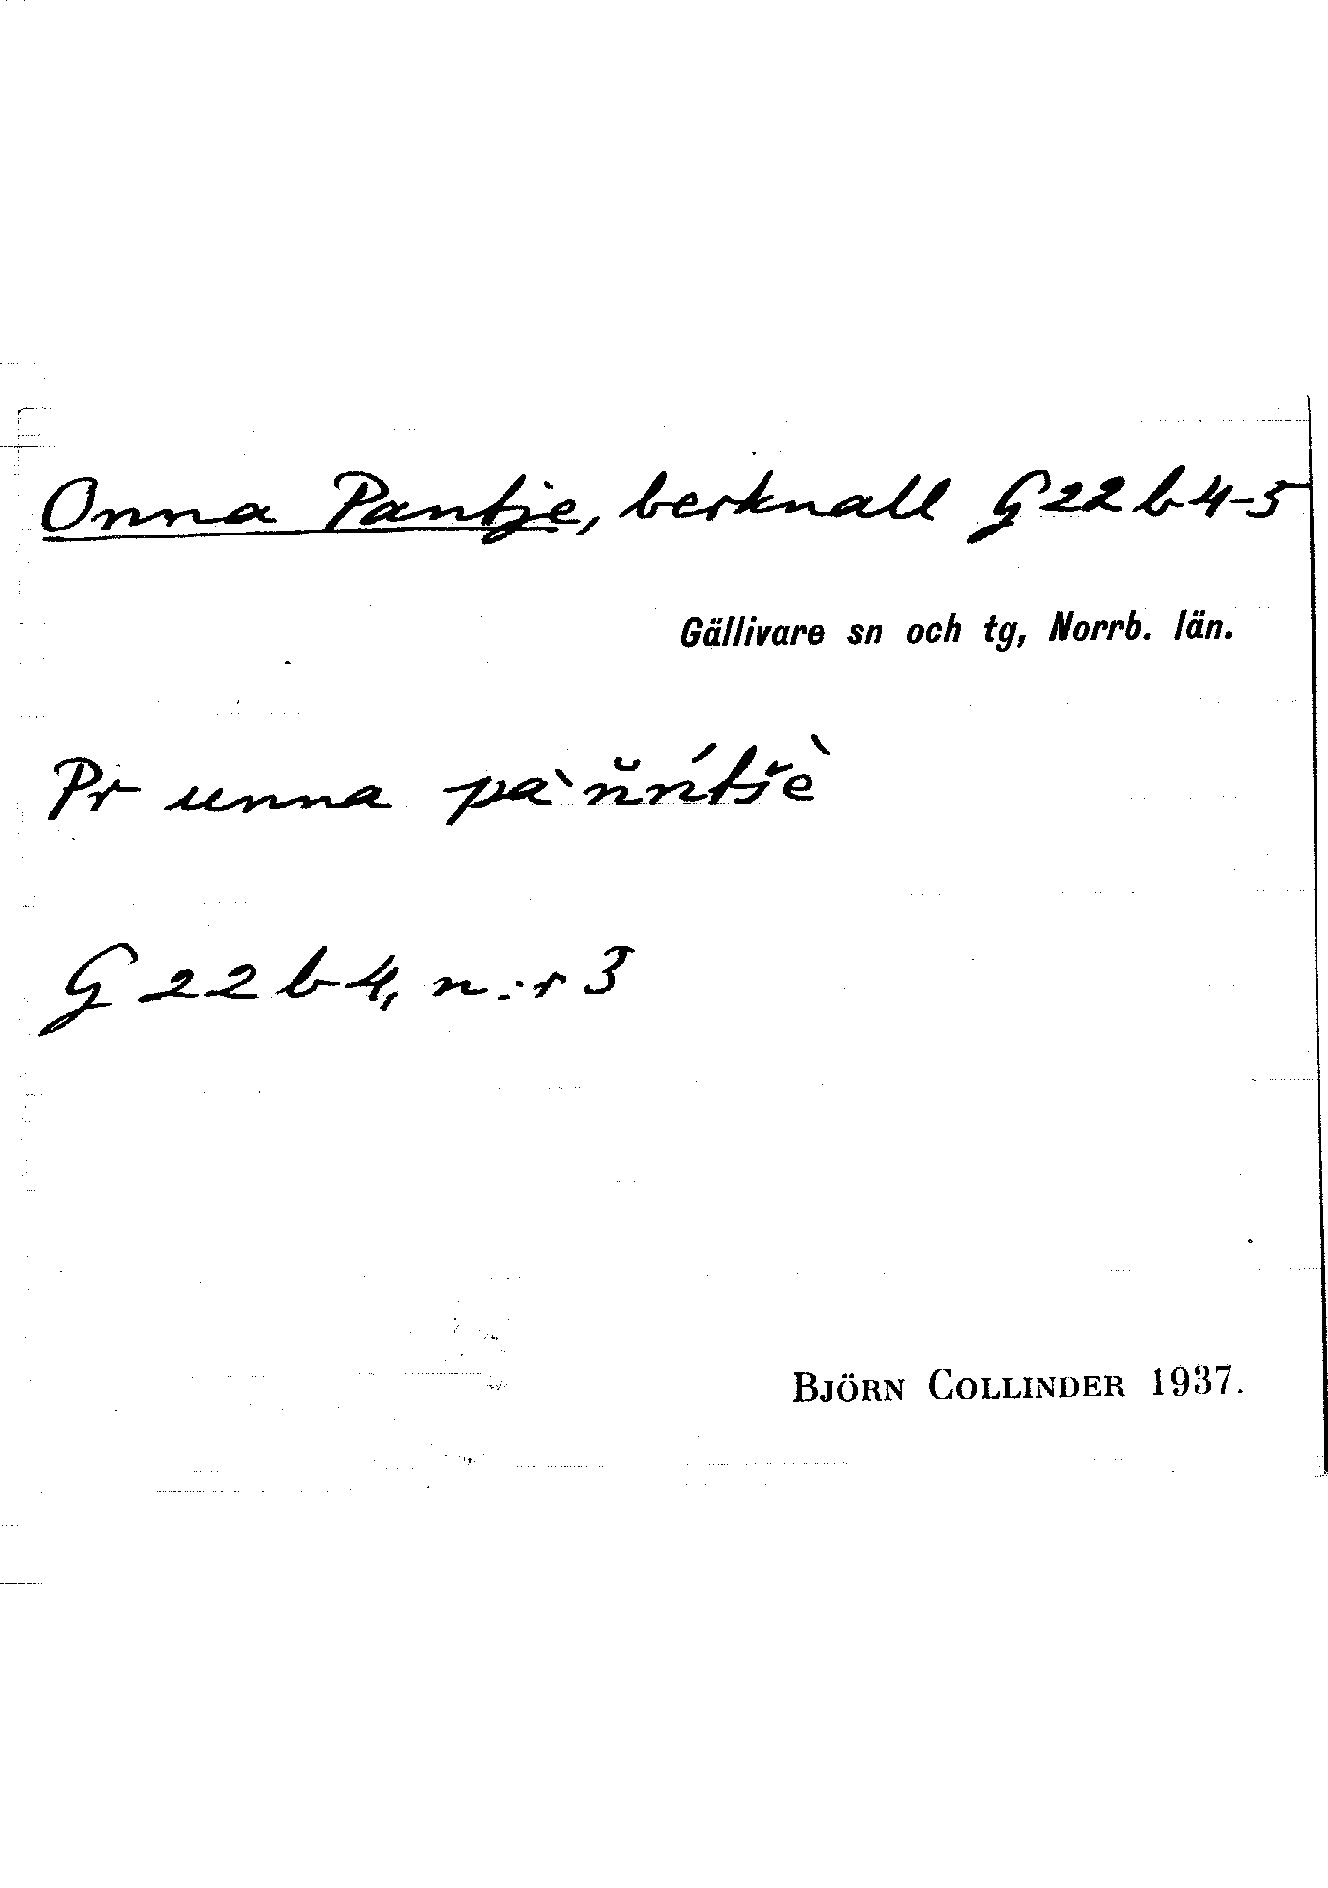 Onna Pantje, berknall G 22 b 4-5
Gällivare sn och tg, Norrb. län.
Pr unna pàn̆ńtšè
G 22 b 4, n:r 3
BJÖRN COLLINDER 1937.